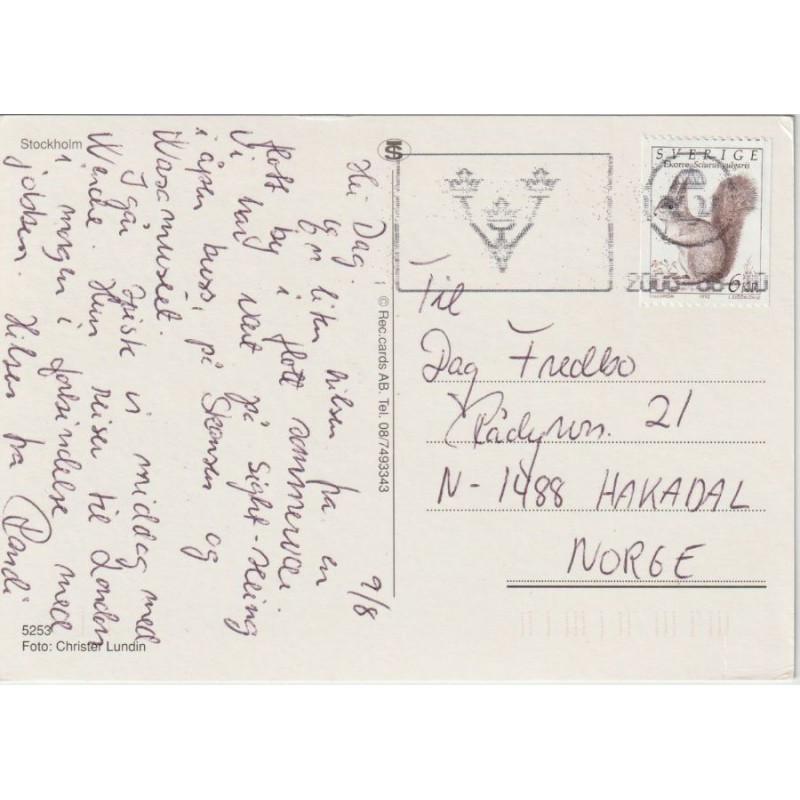 Stockholm
9/8
Hei Dag.
en liten hilsen fra en
flott by i flott sommervær.
Vi har vært på sight-seeing
i åpen buss, på Skansen og
Wasamuséet.
I går spiste vi middag med
Wenche. Hun reiser til London
i morgen i forbindelse med
jobben. Hilsen fra Randi
5253
Foto: Christer Lundin
© Rec.cards AB. Tel. 08/7493343
SVERIGE
Ekorre, Sciurus vulgaris
6 KR
1992
Til
Dag Fredbo
21
N-1488 HAKADAL
NORGE